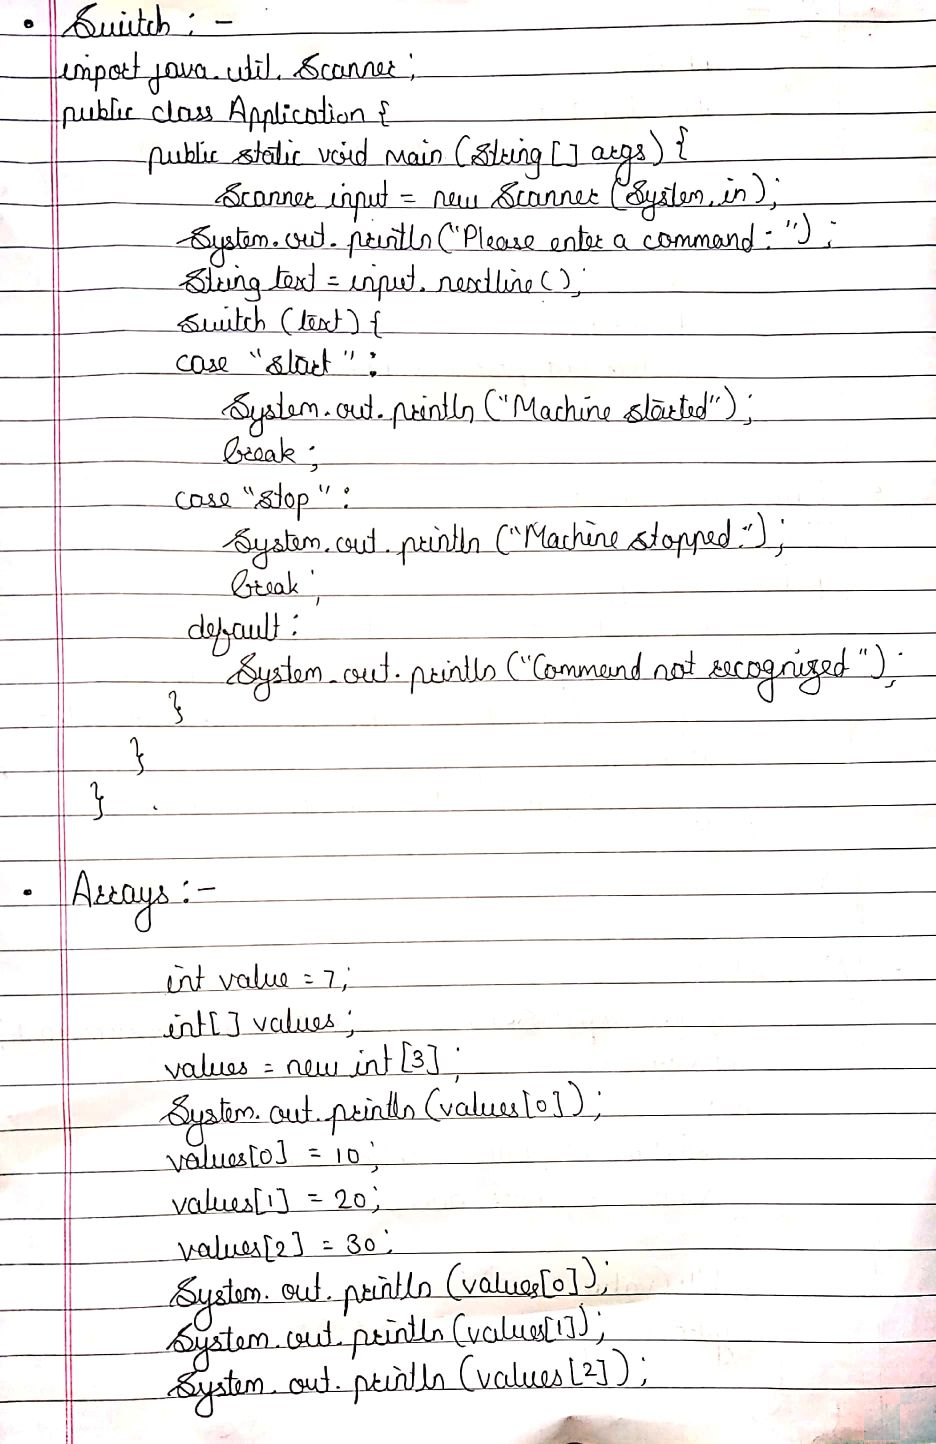 • Switch : -
import java.util.Scanner;
public class Application {
public static void main (String [] args) {
Scanner input = new Scanner (System.in);
System.out.println ("Please enter a command : ") ;
String text = input.nextline();
switch (text) {
case "start" :
System.out.println ("Machine started");
break ;
case "stop" :
System.out.println ("Machine stopped.");
break ;
default :
System.out.println ("Command not recognized");
}
}
}
• Arrays : -
int value = 7;
int[] values ;
values = new int [3] ;
System.out.println (values[0]);
values[0] = 10;
values[1] = 20;
values[2] = 30;
System.out.println (values[0]);
System.out.println (values[1]);
System.out.println (values[2]);